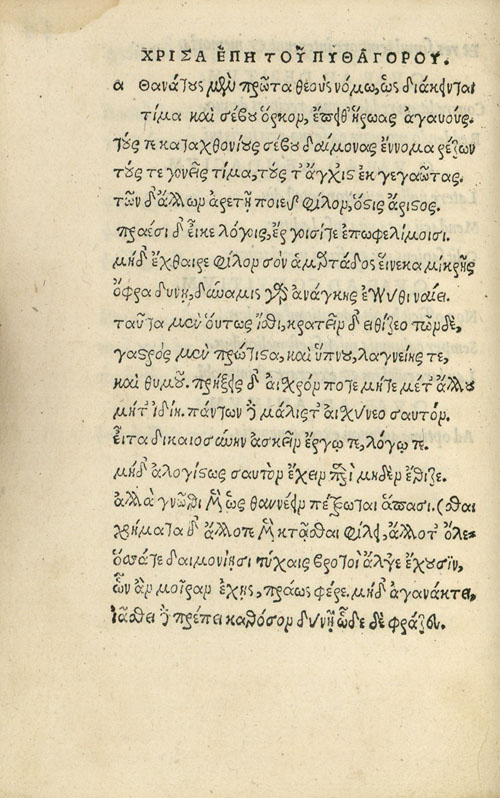 ΧΡΙΣΑ ΕΠΗ ΤΟΥ͂ ΠΥΘΑΓΌΡΟΥ.
α Θανάτους μὲν πρῶτα θεοὺς νόμω, ὡς διάκεινται
τίμα καὶ σέβου ὅρκον, ἔπειθ' ἥρωας ἀγαυούς.
τούς τε καταχθονίους σέβου δαίμονας ἔννομα ῥέζων
τούς τε γονεῖς τίμα, τούς τ' ἄγχις ἐκ γεγαῶτας.
τῶν δ' ἄλλων ἀρετῇ ποιεῦ φίλον, ὅςις ἄριςος.
πραέσι δ' εἶκε λόγοις, ἔργοισίτε ἐπωφελίμοισι.
μηδ' ἔχθαιρε φίλον σὸν ἁμαρτάδος εἵνεκα μικρῆς
ὄφρα δύνῃ, δύναμις γὰρ ἀνάγκης ἐγγύθι ναίει.
ταῦτα μὲν οὕτως ἴσθι, κρατεῖν δ' εἰθίζεο τῶνδε,
γαςρὸς μὲν πρώτιςα, καὶ ὕπνου, λαγνείης τε,
καὶ θυμοῦ. πρήξῃς δ' αἰχρόν ποτε μήτε μέτ' ἄλλου
μήτ' ἰδίῃ. πάντων δὲ μάλιςτ' αἰχύνεο σαυτόν.
εἶτα δικαιοσύνην ἀσκεῖν ἔργῳ τε, λόγῳ τε.
μηδ' ἀλογίςως σαυτὸν ἔχειν περὶ μηδὲν ἔθιζε.
ἀλλὰ γνῶθι μὲν ὡς θανέειν πέπρωται ἅπασι. (σθαι
χρήματα δ' ἄλλοτε μὲν κτᾶσθαι φιλεῖ, ἄλλοτ' ὀλέ=
ὅσσάτε δαιμονίῃσι τύχαις βροτοὶ ἄλγε' ἔχουσϊν,
ὧν ἂν μοῖραν ἔχῃς, πράως φέρε. μηδ' ἀγανάκτει,
ἰᾶσθαι δὲ πρέπει καθόσον δύνῃ ὧδε δὲ φράζευ.